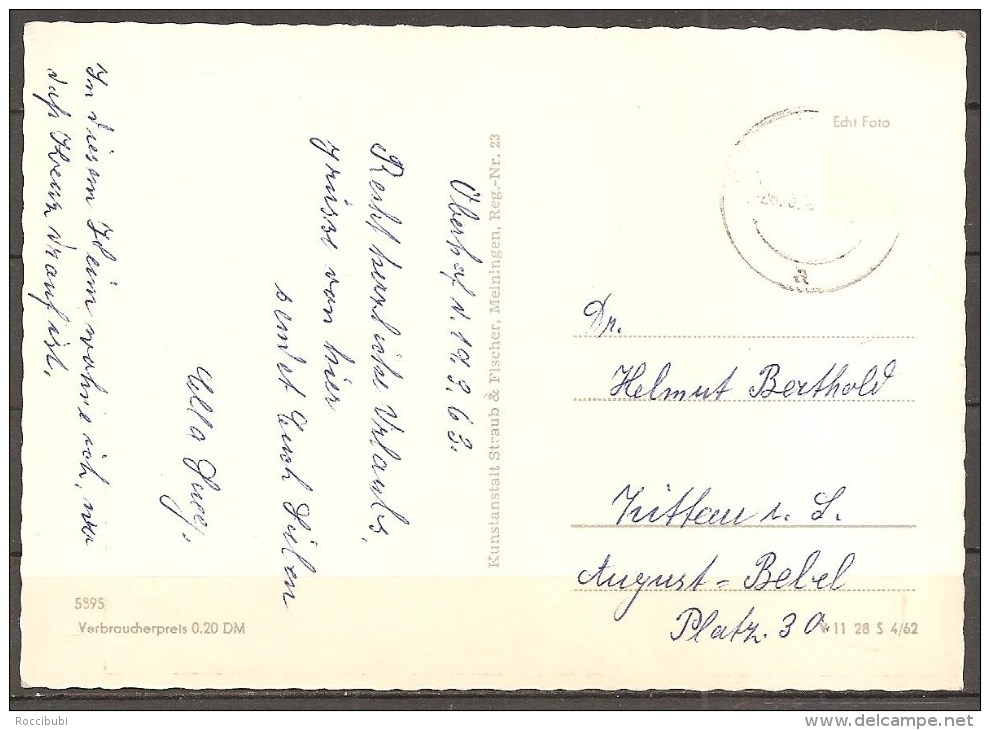 Oberhof d. 19.3.63.
Recht herzliche Urlaubs,
grüsse von hier
sendet Euch Dilen
Ulla
In diesem Heim wohne ich, wo
daß Kreuz drauf ist.
Kunstanstalt Straub & Fischer, Meiningen, Reg.-Nr. 23
Echt Foto
Dr.
Helmut Berthold
Zittau i. S.
August=Bebel
Platz. 30
5895
Verbraucherpreis 0.20 DM
V 11 28 S 4/62
Roccibubi
www.delcampe.net